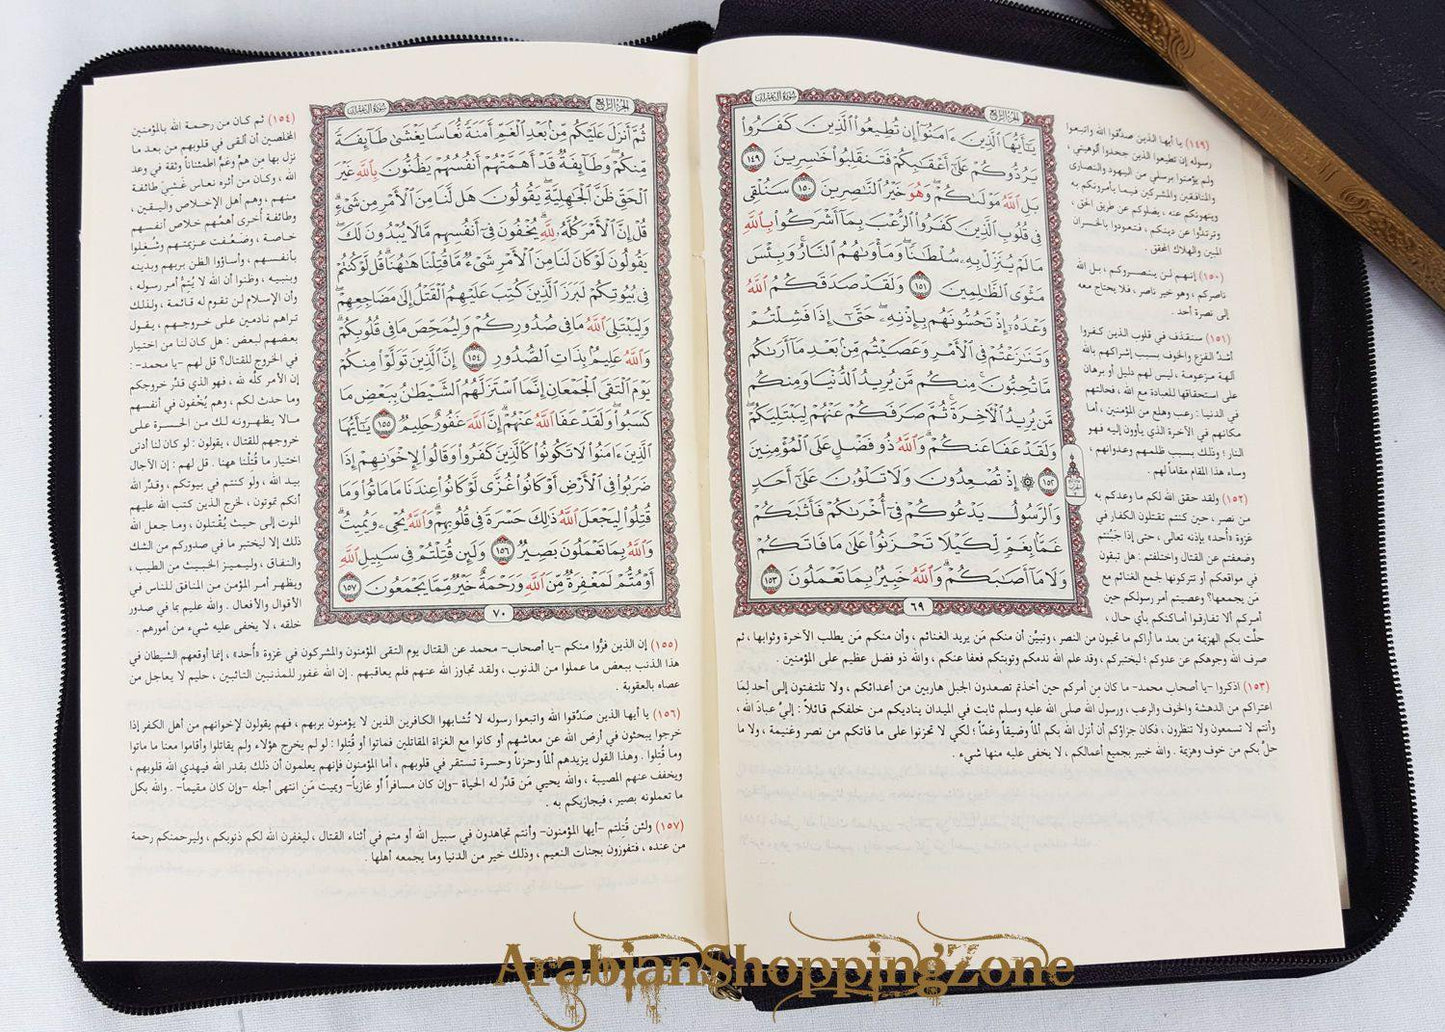 سُورَةُ آلِ عِمْرَان
الجُزْءُ الرَّابِع
يَٰٓأَيُّهَا ٱلَّذِينَ ءَامَنُوٓاْ إِن تُطِيعُواْ ٱلَّذِينَ كَفَرُواْ
يَرُدُّوكُمْ عَلَىٰٓ أَعْقَٰبِكُمْ فَتَنقَلِبُواْ خَٰسِرِينَ ١٤٩
بَلِ ٱللَّهُ مَوْلَىٰكُمْ وَهُوَ خَيْرُ ٱلنَّٰصِرِينَ ١٥٠ سَنُلْقِي
فِي قُلُوبِ ٱلَّذِينَ كَفَرُواْ ٱلرُّعْبَ بِمَآ أَشْرَكُواْ بِٱللَّهِ
مَا لَمْ يُنَزِّلْ بِهِۦ سُلْطَٰنًا وَمَأْوَىٰهُمُ ٱلنَّارُ وَبِئْسَ
مَثْوَى ٱلظَّٰلِمِينَ ١٥١ وَلَقَدْ صَدَقَكُمُ ٱللَّهُ
وَعْدَهُۥٓ إِذْ تَحُسُّونَهُم بِإِذْنِهِۦ حَتَّىٰٓ إِذَا فَشِلْتُمْ
وَتَنَٰزَعْتُمْ فِي ٱلْأَمْرِ وَعَصَيْتُم مِّنۢ بَعْدِ مَآ أَرَىٰكُم
مَّا تُحِبُّونَ مِنكُم مَّن يُرِيدُ ٱلدُّنْيَا وَمِنكُم
مَّن يُرِيدُ ٱلْأٓخِرَةَ ثُمَّ صَرَفَكُمْ عَنْهُمْ لِيَبْتَلِيَكُمْ
وَلَقَدْ عَفَا عَنكُمْ وَٱللَّهُ ذُو فَضْلٍ عَلَى ٱلْمُؤْمِنِينَ
١٥٢ ۞ إِذْ تُصْعِدُونَ وَلَا تَلْوُۥنَ عَلَىٰٓ أَحَدٍ
وَٱلرَّسُولُ يَدْعُوكُمْ فِيٓ أُخْرَىٰكُمْ فَأَثَٰبَكُمْ
غَمًّۢا بِغَمٍّ لِّكَيْلَا تَحْزَنُواْ عَلَىٰ مَا فَاتَكُمْ
وَلَا مَآ أَصَٰبَكُمْ وَٱللَّهُ خَبِيرُۢ بِمَا تَعْمَلُونَ ١٥٣
٦٩
(١٤٩) يا أيها الذين صدَّقوا الله واتبعوا
رسوله إن تطيعوا الذين جحدوا ألوهيتي،
ولم يؤمنوا برسلي من اليهود والنصارى
والمنافقين والمشركين فيما يأمرونكم به
وينهونكم عنه، يضلوكم عن طريق الحق،
وترتدُّوا عن دينكم، فتعودوا بالخسران
المبين والهلاك المحقق.
(١٥٠) إنهم لن ينصروكم، بل الله
ناصركم، وهو خير ناصر، فلا يحتاج معه
إلى نصرة أحد.
(١٥١) سنقذف في قلوب الذين كفروا
أشدَّ الفزع والخوف بسبب إشراكهم بالله
آلهة مزعومة، ليس لهم دليل أو برهان
على استحقاقها للعبادة مع الله، فحالتهم
في الدنيا: رعب وهلع من المؤمنين، أما
مكانهم في الآخرة الذي يأوون إليه فهو
النار؛ وذلك بسبب ظلمهم وعدوانهم،
وساء هذا المقام مقاماً لهم.
(١٥٢) ولقد حقق الله لكم ما وعدكم به
من نصر، حين كنتم تقتلون الكفار في
غزوة «أُحد» بإذنه تعالى، حتى إذا جَبُنتم
وضعفتم عن القتال واختلفتم: هل تبقون
في مواقعكم أو تتركونها لجمع الغنائم مع
مَن يجمعها؟ وعصيتم أمر رسولكم حين
أمركم ألا تفارقوا أماكنكم بأي حال،
حلَّت بكم الهزيمة من بعد ما أراكم ما تحبون من النصر، وتبيَّن أن منكم مَن يريد الغنائم، وأن منكم مَن يطلب الآخرة وثوابها، ثم
صرف الله وجوهكم عن عدوكم؛ ليختبركم، وقد علم الله ندمكم وتوبتكم فعفا عنكم، والله ذو فضل عظيم على المؤمنين.
(١٥٣) اذكروا -يا أصحاب محمد- ما كان مِن أمركم حين أخذتم تصعدون الجبل هاربين من أعدائكم، ولا تلتفتون إلى أحد لِمَا
اعتراكم من الدهشة والخوف والرعب، ورسول الله صلى الله عليه وسلم ثابت في الميدان يناديكم من خلفكم قائلاً: إليَّ عبادَ الله،
وأنتم لا تسمعون ولا تنظرون، فكان جزاؤكم أن أنزل الله بكم ألماً وضيقاً وغمّاً؛ لكي لا تحزنوا على ما فاتكم من نصر وغنيمة، ولا ما
حلَّ بكم من خوف وهزيمة. والله خبير بجميع أعمالكم، لا يخفى عليه منها شيء.
سُورَةُ آلِ عِمْرَان
الجُزْءُ الرَّابِع
ثُمَّ أَنزَلَ عَلَيْكُم مِّنۢ بَعْدِ ٱلْغَمِّ أَمَنَةً نُّعَاسًا يَغْشَىٰ طَآئِفَةً
مِّنكُمْ وَطَآئِفَةٌ قَدْ أَهَمَّتْهُمْ أَنفُسُهُمْ يَظُنُّونَ بِٱللَّهِ غَيْرَ
ٱلْحَقِّ ظَنَّ ٱلْجَٰهِلِيَّةِ يَقُولُونَ هَل لَّنَا مِنَ ٱلْأَمْرِ مِن شَيْءٍ
قُلْ إِنَّ ٱلْأَمْرَ كُلَّهُۥ لِلَّهِ يُخْفُونَ فِيٓ أَنفُسِهِم مَّا لَا يُبْدُونَ لَكَ
يَقُولُونَ لَوْ كَانَ لَنَا مِنَ ٱلْأَمْرِ شَيْءٌ مَّا قُتِلْنَا هَٰهُنَا قُل لَّوْ كُنتُمْ
فِي بُيُوتِكُمْ لَبَرَزَ ٱلَّذِينَ كُتِبَ عَلَيْهِمُ ٱلْقَتْلُ إِلَىٰ مَضَاجِعِهِمْ
وَلِيَبْتَلِيَ ٱللَّهُ مَا فِي صُدُورِكُمْ وَلِيُمَحِّصَ مَا فِي قُلُوبِكُمْ
وَٱللَّهُ عَلِيمُۢ بِذَاتِ ٱلصُّدُورِ ١٥٤ إِنَّ ٱلَّذِينَ تَوَلَّوْاْ مِنكُمْ
يَوْمَ ٱلْتَقَى ٱلْجَمْعَانِ إِنَّمَا ٱسْتَزَلَّهُمُ ٱلشَّيْطَٰنُ بِبَعْضِ مَا
كَسَبُواْ وَلَقَدْ عَفَا ٱللَّهُ عَنْهُمْ إِنَّ ٱللَّهَ غَفُورٌ حَلِيمٌ ١٥٥ يَٰٓأَيُّهَا
ٱلَّذِينَ ءَامَنُواْ لَا تَكُونُواْ كَٱلَّذِينَ كَفَرُواْ وَقَالُواْ لِإِخْوَٰنِهِمْ إِذَا
ضَرَبُواْ فِي ٱلْأَرْضِ أَوْ كَانُواْ غُزًّى لَّوْ كَانُواْ عِندَنَا مَا مَاتُواْ وَمَا
قُتِلُواْ لِيَجْعَلَ ٱللَّهُ ذَٰلِكَ حَسْرَةً فِي قُلُوبِهِمْ وَٱللَّهُ يُحْيِۦ وَيُمِيتُ
وَٱللَّهُ بِمَا تَعْمَلُونَ بَصِيرٌ ١٥٦ وَلَئِن قُتِلْتُمْ فِي سَبِيلِ ٱللَّهِ
أَوْ مُتُّمْ لَمَغْفِرَةٌ مِّنَ ٱللَّهِ وَرَحْمَةٌ خَيْرٌ مِّمَّا يَجْمَعُونَ ١٥٧
٧٠
(١٥٤) ثم كان من رحمة الله بالمؤمنين
المخلصين أن ألقى في قلوبهم من بعد ما
نزل بها من همٍّ وغمٍّ اطمئناناً وثقة في وعد
الله، وكان من أثره نعاس غَشِيَ طائفة
منهم، وهم أهل الإخلاص واليقين،
وطائفة أُخرى أهمَّهم خلاص أنفسهم
خاصة، وضَعُفَت عزيمتهم وشُغلوا
بأنفسهم، وأساؤوا الظن بربهم وبدينه
وبنبيه، وظنوا أن الله لا يُتِمُّ أمر رسوله،
وأن الإسلام لن تقوم له قائمة، ولذلك
تراهم نادمين على خروجهم، يقول
بعضهم لبعض: هل كان لنا من اختيار
في الخروج للقتال؟ قل لهم -يا محمد-:
إن الأمر كلَّه لله، فهو الذي قدَّر خروجكم
وما حدث لكم، وهم يُخْفون في أنفسهم
مالا يظهرونه لك من الحسرة على
خروجهم للقتال، يقولون: لو كان لنا أدنى
اختيار ما قُتلنا هاهنا. قل لهم: إن الآجال
بيد الله، ولو كنتم في بيوتكم، وقدَّر الله
أنكم تموتون، لخرج الذين كتب الله عليهم
الموت إلى حيث يُقتلون، وما جعل الله
ذلك إلا ليختبر ما في صدوركم من الشك
والنفاق، وليميز الخبيث من الطيب،
ويظهر أمر المؤمن من المنافق للناس في
الأقوال والأفعال. والله عليم بما في صدور
خلقه، لا يخفى عليه شيء من أمورهم.
(١٥٥) إن الذين فرُّوا منكم -يا أصحاب- محمد عن القتال يوم التقى المؤمنون والمشركون في غزوة «أُحد»، إنما أوقعهم الشيطان في
هذا الذنب ببعض ما عملوا من الذنوب، ولقد تجاوز الله عنهم فلم يعاقبهم. إن الله غفور للمذنبين التائبين، حليم لا يعاجل من
عصاه بالعقوبة.
(١٥٦) يا أيها الذين صَدَّقوا الله واتبعوا رسوله لا تُشابهوا الكافرين الذين لا يؤمنون بربهم، فهم يقولون لإخوانهم من أهل الكفر إذا
خرجوا يبحثون في أرض الله عن معاشهم أو كانوا مع الغزاة المقاتلين فماتوا أو قُتلوا: لو لم يخرج هؤلاء ولم يقاتلوا وأقاموا معنا ما ماتوا
وما قُتلوا. وهذا القول يزيدهم ألماً وحزناً وحسرة تستقر في قلوبهم، أما المؤمنون فإنهم يعلمون أن ذلك بقدر الله فيهدي الله قلوبهم،
ويخفف عنهم المصيبة، والله يحيي مَن قدَّر له الحياة -وإن كان مسافراً أو غازياً- ويميت مَنِ انتهى أجله -وإن كان مقيماً-. والله بكل
ما تعملونه بصير، فيجازيكم به.
(١٥٧) ولئن قُتِلتم -أيها المؤمنون- وأنتم تجاهدون في سبيل الله أو متم في أثناء القتال، ليغفرن الله لكم ذنوبكم، وليرحمنكم رحمة
من عنده، فتفوزون بجنات النعيم، وذلك خير من الدنيا وما يجمعه أهلها.
ArabianShoppingZone